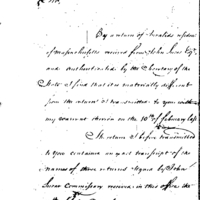 Sir,
By a return of Invalids in favor
of Massachusetts received from John Lucas Esqr.
and authenticated by the Secretary of the
State I find that it is materially different
from the return I transmitted to you with
my warrant thereon on the 10th of February last
The return I before transmitted
to you contains an exact transcript of the
Names of those returned signed by John
Lucas Commissary received in this office the